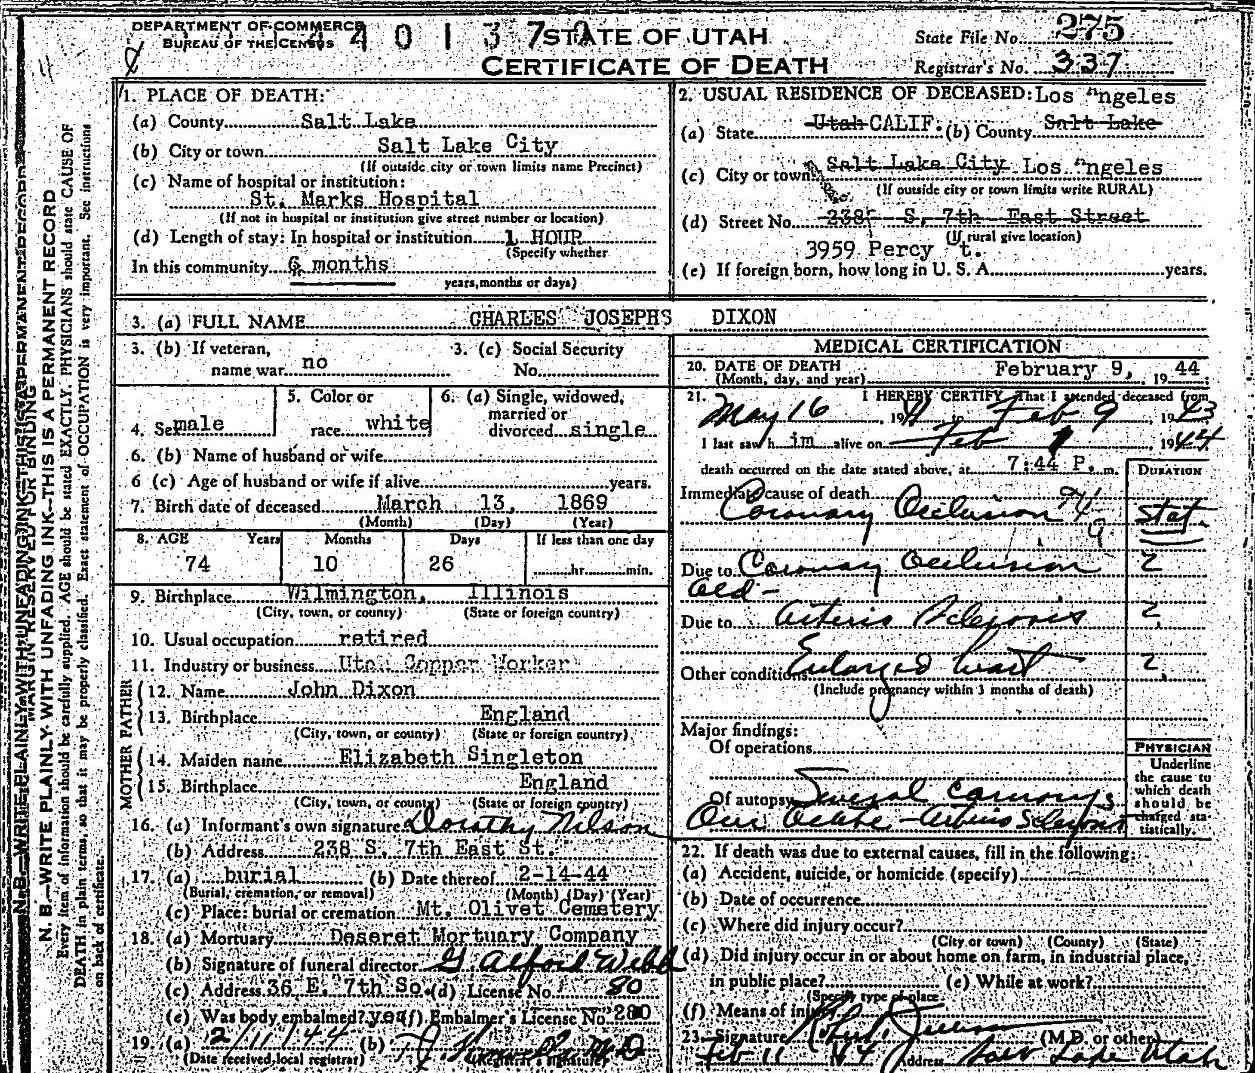 DEPARTMENT OF COMMERCE
BUREAU OF THE CENSUS
STATE OF UTAH
CERTIFICATE OF DEATH
State File No. 275
Registrar's No. 337
1. PLACE OF DEATH:
(a) County Salt Lake
(b) City or town Salt Lake City
(If outside city or town limits name Precinct)
(c) Name of hospital or institution:
St. Marks Hospital
(If not in hospital or institution give street number or location)
(d) Length of stay: In hospital or institution 1 HOUR
(Specify whether
In this community 6 months
years, months or days)
2. USUAL RESIDENCE OF DECEASED: Los Angeles
(a) State Utah CALIF. (b) County Salt Lake
(c) City or town Salt Lake City Los Angeles
(If outside city or town limits write RURAL)
(d) Street No. 238 S. 7th East Street
(If rural give location)
3959 Percy t.
(e) If foreign born, how long in U. S. A. years.
3. (a) FULL NAME CHARLES JOSEPHS DIXON
3. (b) If veteran, name war no
3. (c) Social Security No.
4. Sex male
5. Color or race white
6. (a) Single, widowed, married or divorced single
6. (b) Name of husband or wife
6 (c) Age of husband or wife if alive years.
7. Birth date of deceased March 13, 1869
(Month) (Day) (Year)
8. AGE Years Months Days If less than one day
74 10 26 hr. min.
9. Birthplace Wilmington, Illinois
(City, town, or county) (State or foreign country)
10. Usual occupation retired
11. Industry or business Utah Copper Worker
FATHER
12. Name John Dixon
13. Birthplace England
(City, town, or county) (State or foreign country)
MOTHER
14. Maiden name Elizabeth Singleton
15. Birthplace England
(City, town, or county) (State or foreign country)
16. (a) Informant's own signature Dorothy Nilson
(b) Address 238 S. 7th East St.
17. (a) burial (b) Date thereof 2-14-44
(Burial, cremation, or removal) (Month) (Day) (Year)
(c) Place: burial or cremation Mt. Olivet Cemetery
18. (a) Mortuary Deseret Mortuary Company
(b) Signature of funeral director G. Alford Webb
(c) Address 36 E. 7th So. (d) License No. 80
(e) Was body embalmed? yes (f) Embalmer's License No. 280
19. (a) 2/11/44 (b) M.D.
(Date received local registrar) (Registrar's signature)
MEDICAL CERTIFICATION
20. DATE OF DEATH
(Month, day, and year) February 9, 1944
21. I HEREBY CERTIFY That I attended deceased from
May 16 to Feb 9 1943
I last saw him alive on Feb 1944
death occurred on the date stated above, at 7:44 P. m.
DURATION
Immediate cause of death
Coronary Occlusion 94 Stat.
9
Due to Coronary Occlusion 2
Old -
Due to Arterio Sclerosis 2
Other conditions Enlarged heart 2
(Include pregnancy within 3 months of death)
Major findings:
Of operations
Of autopsy Several Coronary
Arterio Sclerosis
PHYSICIAN
Underline
the cause to
which death
should be
charged sta-
tistically.
22. If death was due to external causes, fill in the following:
(a) Accident, suicide, or homicide (specify)
(b) Date of occurrence
(c) Where did injury occur?
(City or town) (County) (State)
(d) Did injury occur in or about home on farm, in industrial place,
in public place? (e) While at work?
(Specify type of place
(f) Means of injury
23. Signature (M.D. or other)
Feb 11 44 Address Salt Lake Utah
MARGIN RESERVED FOR BINDING
N. B.—WRITE PLAINLY WITH UNFADING INK—THIS IS A PERMANENT RECORD
Every item of information should be carefully supplied. AGE should be stated EXACTLY. PHYSICIANS should state CAUSE OF
DEATH in plain terms, so that it may be properly classified. Exact statement of OCCUPATION is very important. See instructions
on back of certificate.